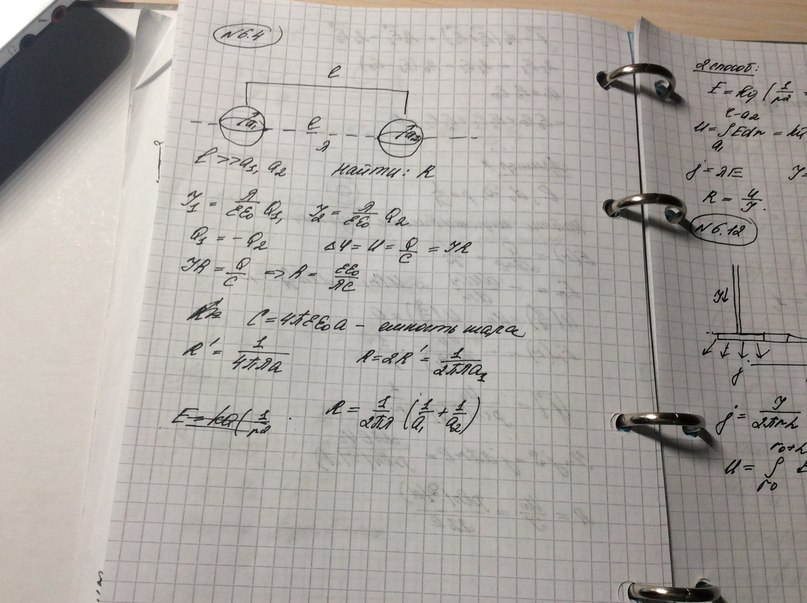 №6.4
l
a₁ l a₂
λ
l >> a₁, a₂ Найти: R
J₁ = λ/εε₀ Q₁, J₂ = λ/εε₀ Q₂
Q₁ = -Q₂ Δφ = U = Q/C = JR
JR = Q/C => R = εε₀/λC
C = 4πεε₀a - емкость шара
R' = 1/4πλa R = 2R' = 1/2πλa₁
E = kQ(1/r²
R = 1/2πλ (1/a₁ + 1/a₂)
2 способ:
E = kq(1/r² +
U = ∫Edr = kq
l-a₂
a₁
j = λE J=
R = U/J.
№6.12
J↓
j
j = J/2πrh
U = ∫
r₀+h
r₀